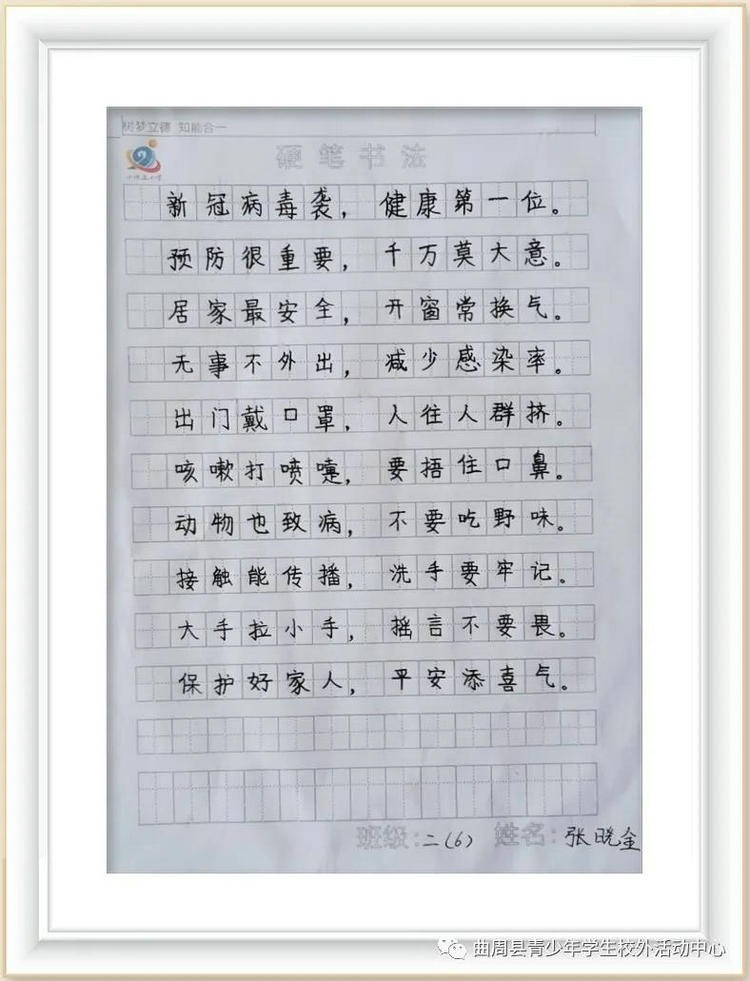 树梦立德 知能合一
硬笔书法
新冠病毒袭，健康第一位。
预防很重要，千万莫大意。
居家最安全，开窗常换气。
无事不外出，减少感染率。
出门戴口罩，人往人群挤。
咳嗽打喷嚏，要捂住口鼻。
动物也致病，不要吃野味。
接触能传播，洗手要牢记。
大手拉小手，摇言不要畏。
保护好家人，平安添喜气。
班级：二（6） 姓名：张晓全
曲周县青少年学生校外活动中心